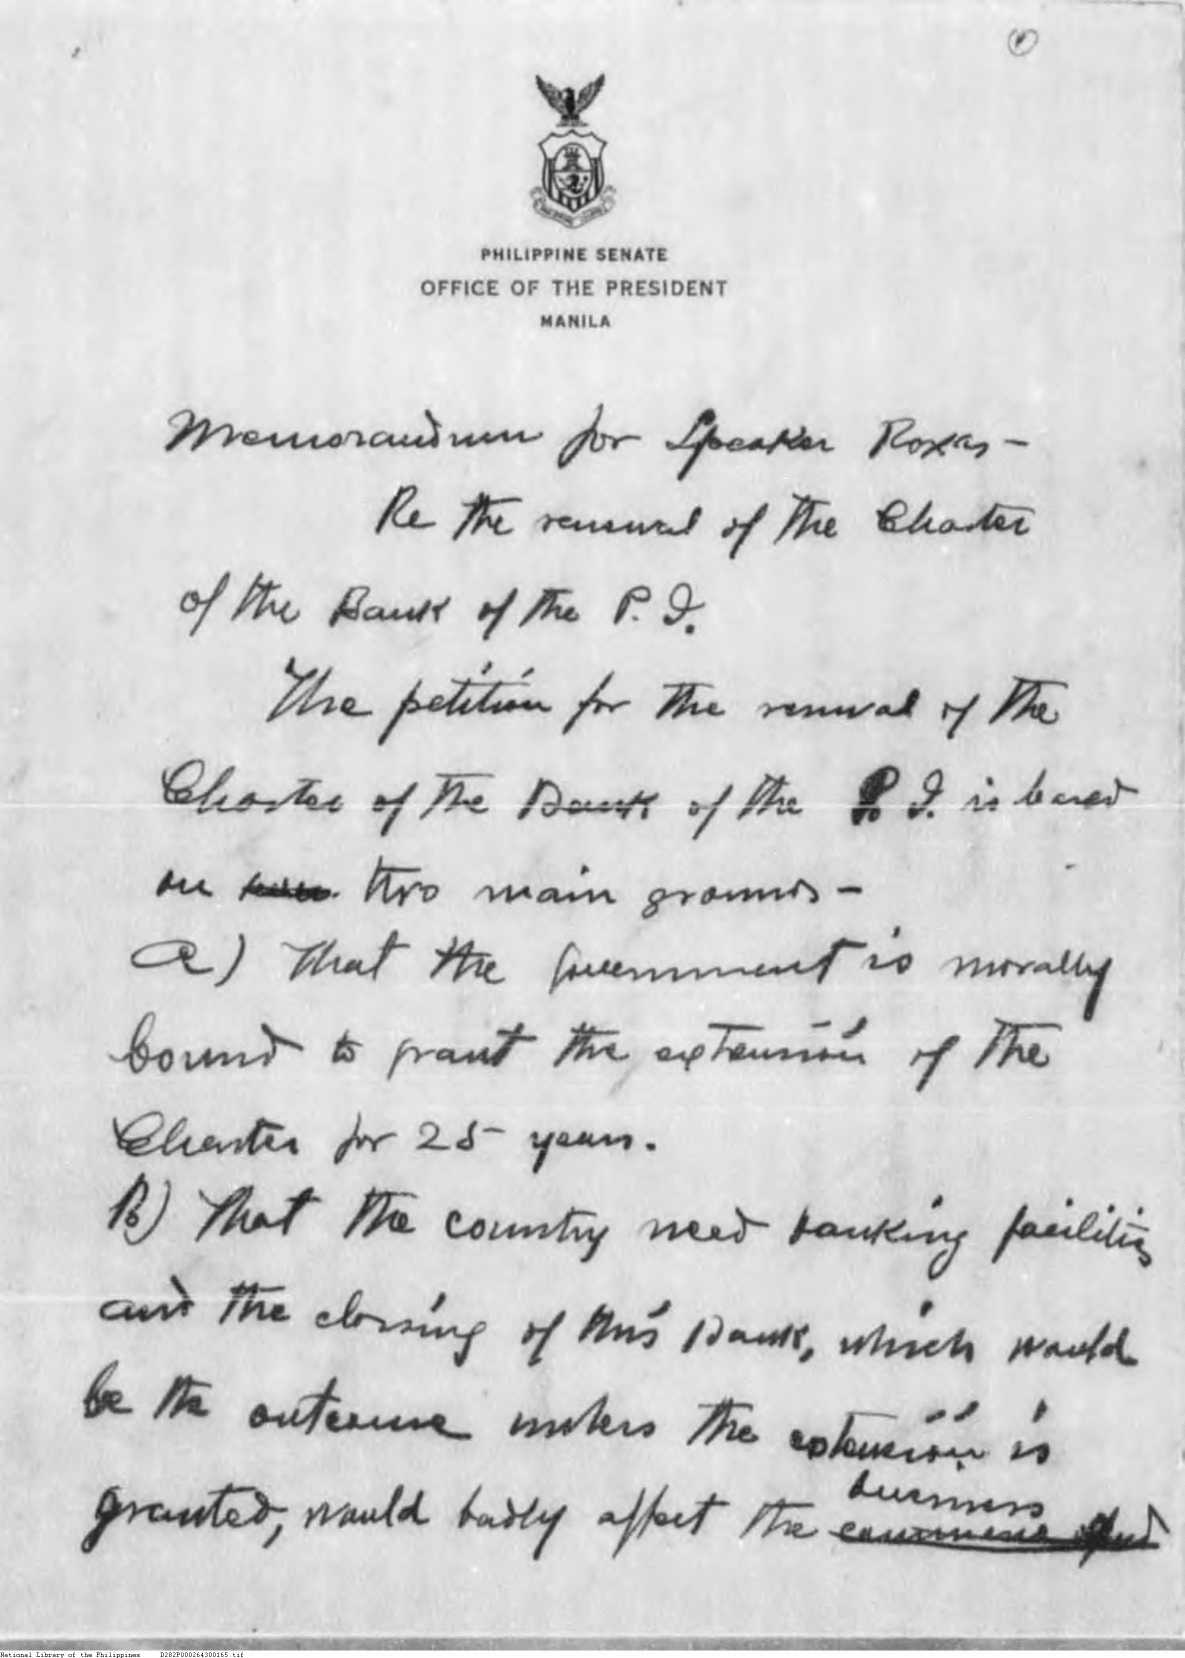 PHILIPPINE SENATE
OFFICE OF THE PRESIDENT
MANILA
Memorandum for Speaker Roxas –
Re the renewal of the Charter
of the Bank of the P. I.
The petition for the renewal of the
Charter of the Bank of the P. I. is based
on two main grounds –
a) That the Government is morally
bound to grant the extension of the
Charter for 25 years.
B) That the country need banking facilities
and the closing of this Bank, which would
be the outcome unless the extension is
business
granted, would badly affect the
National Library of the Philippines D282P000264300165.tif